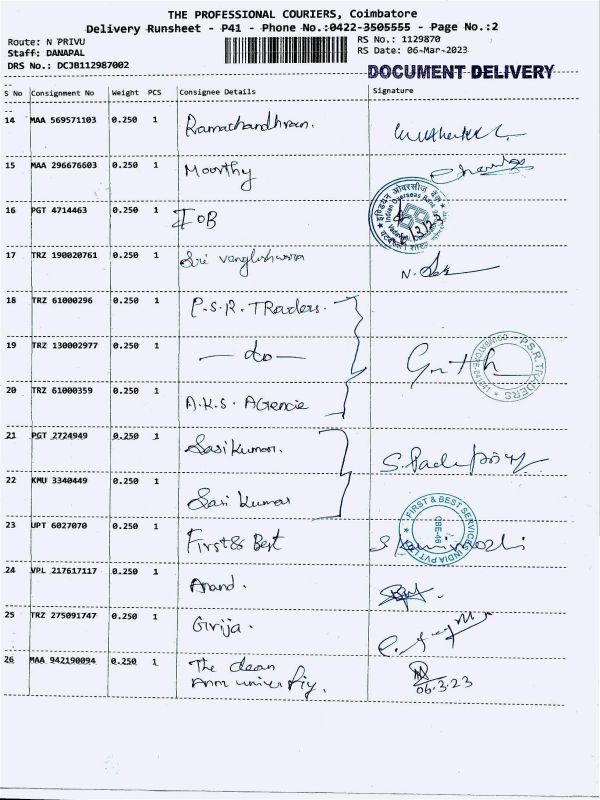 THE PROFESSIONAL COURIERS, Coimbatore
Delivery Runsheet - P41 - Phone No.:0422-3505555 - Page No.:2
Route: N PRIVU
RS No.: 1129870
Staff: DANAPAL
RS Date: 06-Mar-2023
DRS No.: DCJB112987002
DOCUMENT DELIVERY
S No Consignment No Weight PCS Consignee Details Signature
14 MAA 569571103 0.250 1 Ramachandhran.
15 MAA 296676603 0.250 1 Moorthy
16 PGT 4714463 0.250 1 IOB
इण्डियन ओवरसीज बैंक
Indian Overseas Bank
17 TRZ 190020761 0.250 1 Sri
18 TRZ 61000296 0.250 1 P.S.R. TRaders.
19 TRZ 130002977 0.250 1 — do —
P.S.R. TRADERS
20 TRZ 61000359 0.250 1 A.K.S. AGencie
21 PGT 2724949 0.250 1 Sasikumar.
22 KMU 3340449 0.250 1 Sasi Kumar
23 UPT 6027070 0.250 1 First & Best
FIRST & BEST SERVICES INDIA PVT L
CBE-46
24 VPL 217617117 0.250 1 Anand.
25 TRZ 275091747 0.250 1 Girija.
26 MAA 942190094 0.250 1 The dean
Anm univerFiy.
06.3.23